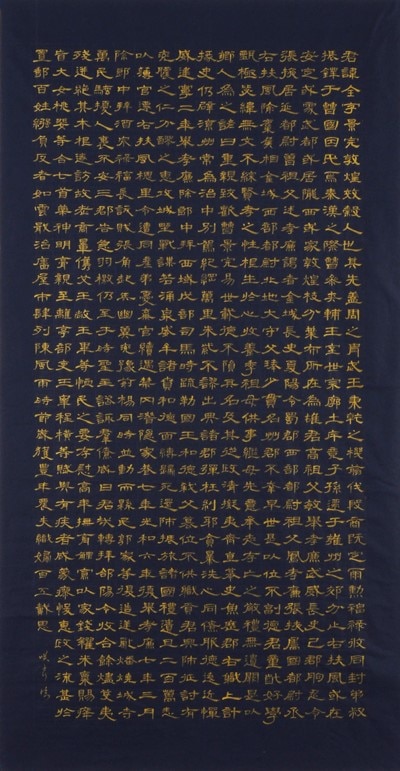 君諱全字景完敦煌效穀人也其先蓋周之冑武王秉乾之機翦伐殷商既定爾勳福祿攸同封弟叔
振鐸于曹國因氏焉秦漢之際曹參夾輔王室世宗廓土斥竟子孫遷于雍州之郊分止右扶風或在
安定或處武都或居隴西或家敦煌枝分葉布所在為雄君高祖父敏舉孝廉武威長史巴郡朐忍令
張掖居延都尉曾祖父述孝廉謁者金城長史夏陽令蜀郡西部都尉祖父鳳孝廉張掖屬國都尉丞
右扶風隃麋侯相金城西部都尉北地大守父琫少貫名州郡不幸早世是以位不副德君童齔好學
甄極毖緯無文不綜賢孝之性根生於心收養季祖母供事繼母先意承志存亡之敬禮無遺闕是以
鄉人為之諺曰重親致歡曹景完易世載德不隕其名及其從政清擬夷齊直慕史魚歷郡右職上計
掾史仍辟涼州常為治中別駕紀綱萬里朱紫不謬出典諸郡彈枉糾邪貪暴洗心同僚服德遠近憚
威建寧二年舉孝廉除郎中拜西域戊部司馬時疏勒國王和德弒父篡位不供職貢君興師征討有
吮膿之仁分醪之惠攻城野戰謀若涌泉威牟諸賁和德面縛歸死還師振旅諸國禮遺且二百萬悉
以簿官遷右扶風槐里令遭同產弟憂棄官續遇禁冈潛隱家巷七年光和六年復舉孝廉七年三月
除郎中拜酒泉祿福長訞賊張角起兵幽冀兗豫荊楊同時並動而縣民郭家等復造逆亂燔燒城寺
萬民騷擾人褱不安三郡告急羽檄仍至于時聖主諮諏群僚咸曰君哉轉拜郃陽令收合餘燼芟夷
殘迸絕其本根遂訪故老商量儁艾王敞王畢等恤民之要存慰高年撫育鰥寡以家錢糴米粟賜癃
盲大女桃斐等合七首藥神明膏親至離亭部吏王皋程橫等賦與有疾者咸蒙瘳悛惠政之流甚於
置郵百姓繈負反者如雲戢治廧屋市肆列陳風雨時節歲獲豐年農夫織婦百工戴恩